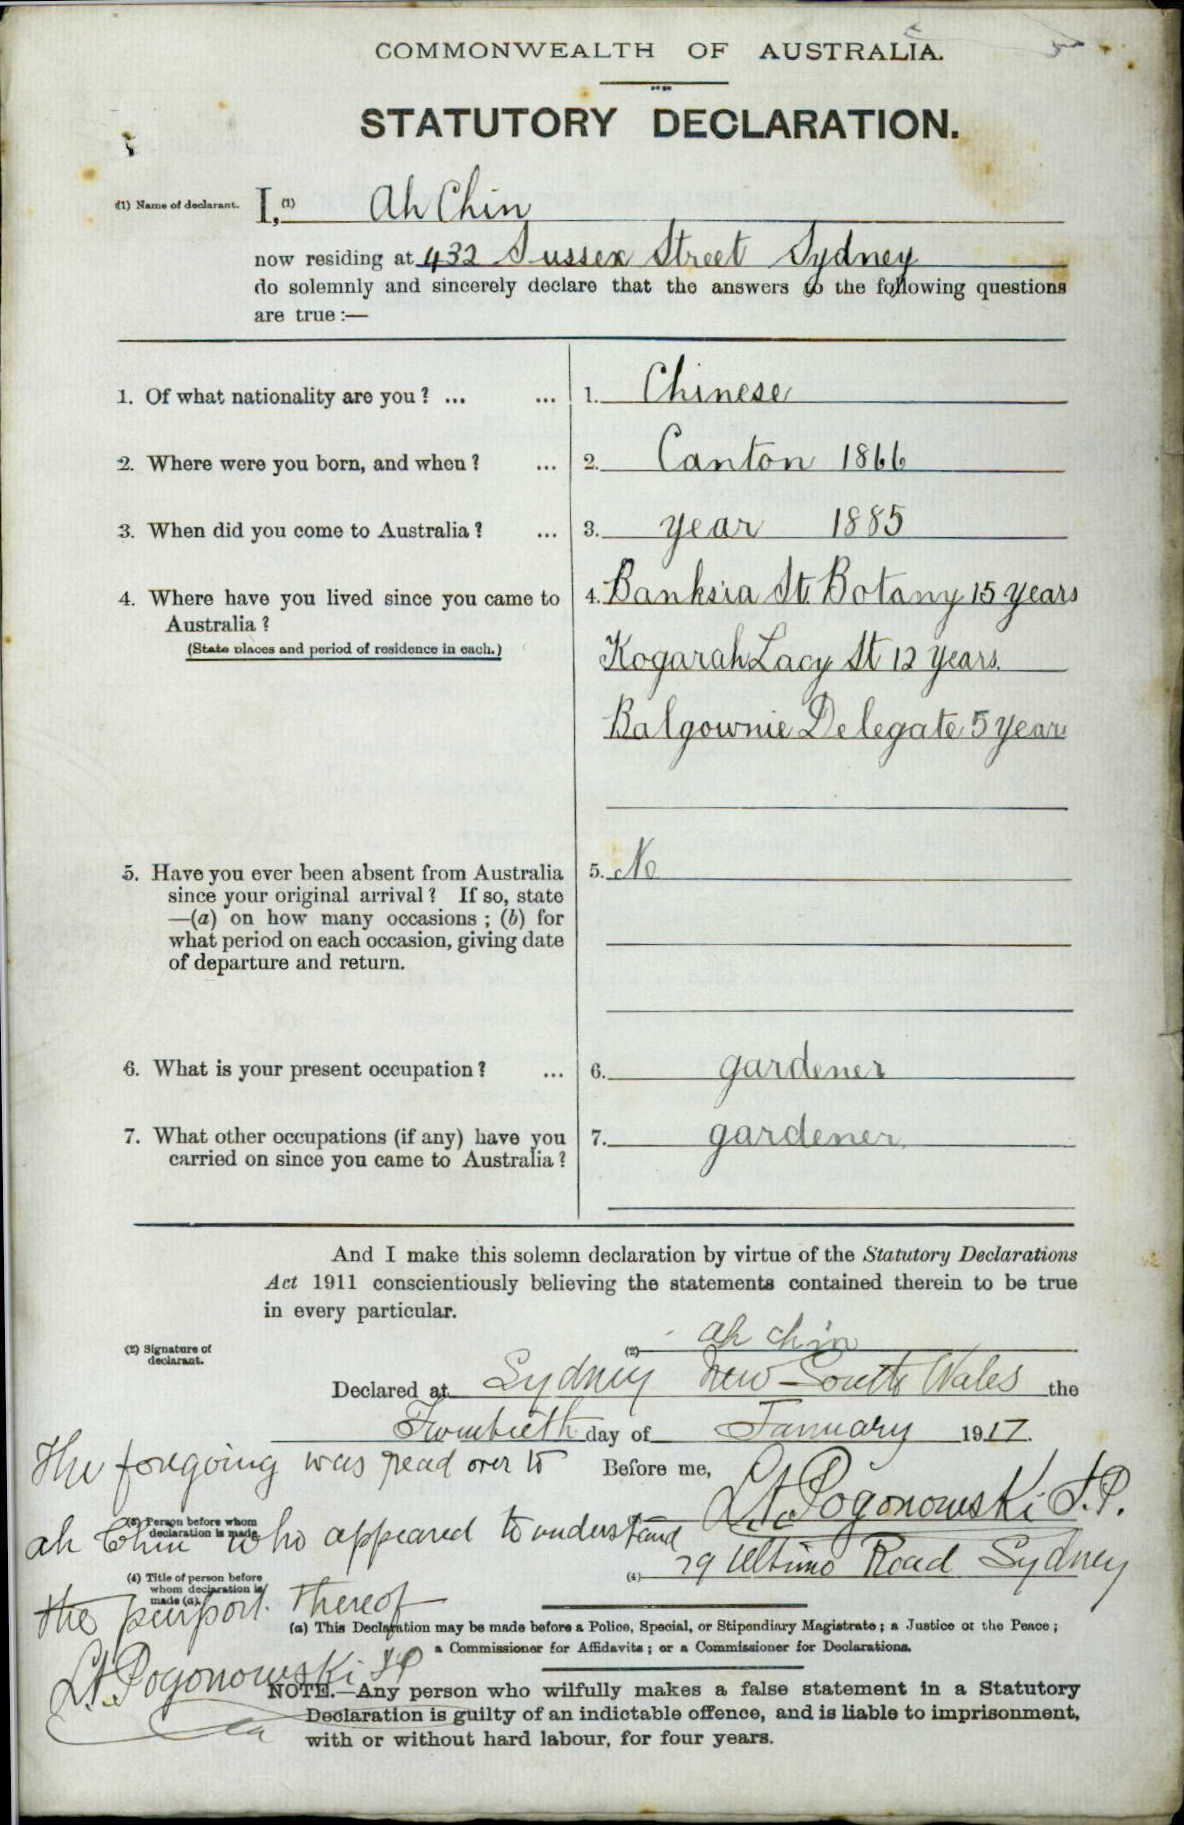 COMMONWEALTH OF AUSTRALIA.
STATUTORY DECLARATION.
(1) Name of declarant. I, (1) Ah Chin
now residing at 432 Sussex Street Sydney
do solemnly and sincerely declare that the answers to the following questions
are true :—
1. Of what nationality are you ? ... ... 1. Chinese
2. Where were you born, and when ? ... 2. Canton 1866
3. When did you come to Australia ? ... 3. year 1885
4. Where have you lived since you came to 4. Banksia St. Botany 15 years
Australia ?
(State places and period of residence in each.) Kogarah Lacy St 12 years.
Balgownie Delegate 5 years
5. Have you ever been absent from Australia 5. No
since your original arrival ? If so, state
—(a) on how many occasions ; (b) for
what period on each occasion, giving date
of departure and return.
6. What is your present occupation ? ... 6. gardener
7. What other occupations (if any) have you 7. gardener
carried on since you came to Australia ?
And I make this solemn declaration by virtue of the Statutory Declarations
Act 1911 conscientiously believing the statements contained therein to be true
in every particular.
(2) Signature of
declarant. (2) ah chin
Declared at Sydney New South Wales the
Twentieth day of January 1917.
The foregoing was read over to Before me,
Pogonowski J.P.
(3) Person before whom
declaration is made.
ah Chin who appeared to understand
(4) 29 Ultimo Road Sydney
(4) Title of person before
whom declaration is
made (a).
the purport thereof
(a) This Declaration may be made before a Police, Special, or Stipendiary Magistrate ; a Justice of the Peace ;
a Commissioner for Affidavits ; or a Commissioner for Declarations.
Pogonowski JP
NOTE.—Any person who wilfully makes a false statement in a Statutory
Declaration is guilty of an indictable offence, and is liable to imprisonment,
with or without hard labour, for four years.